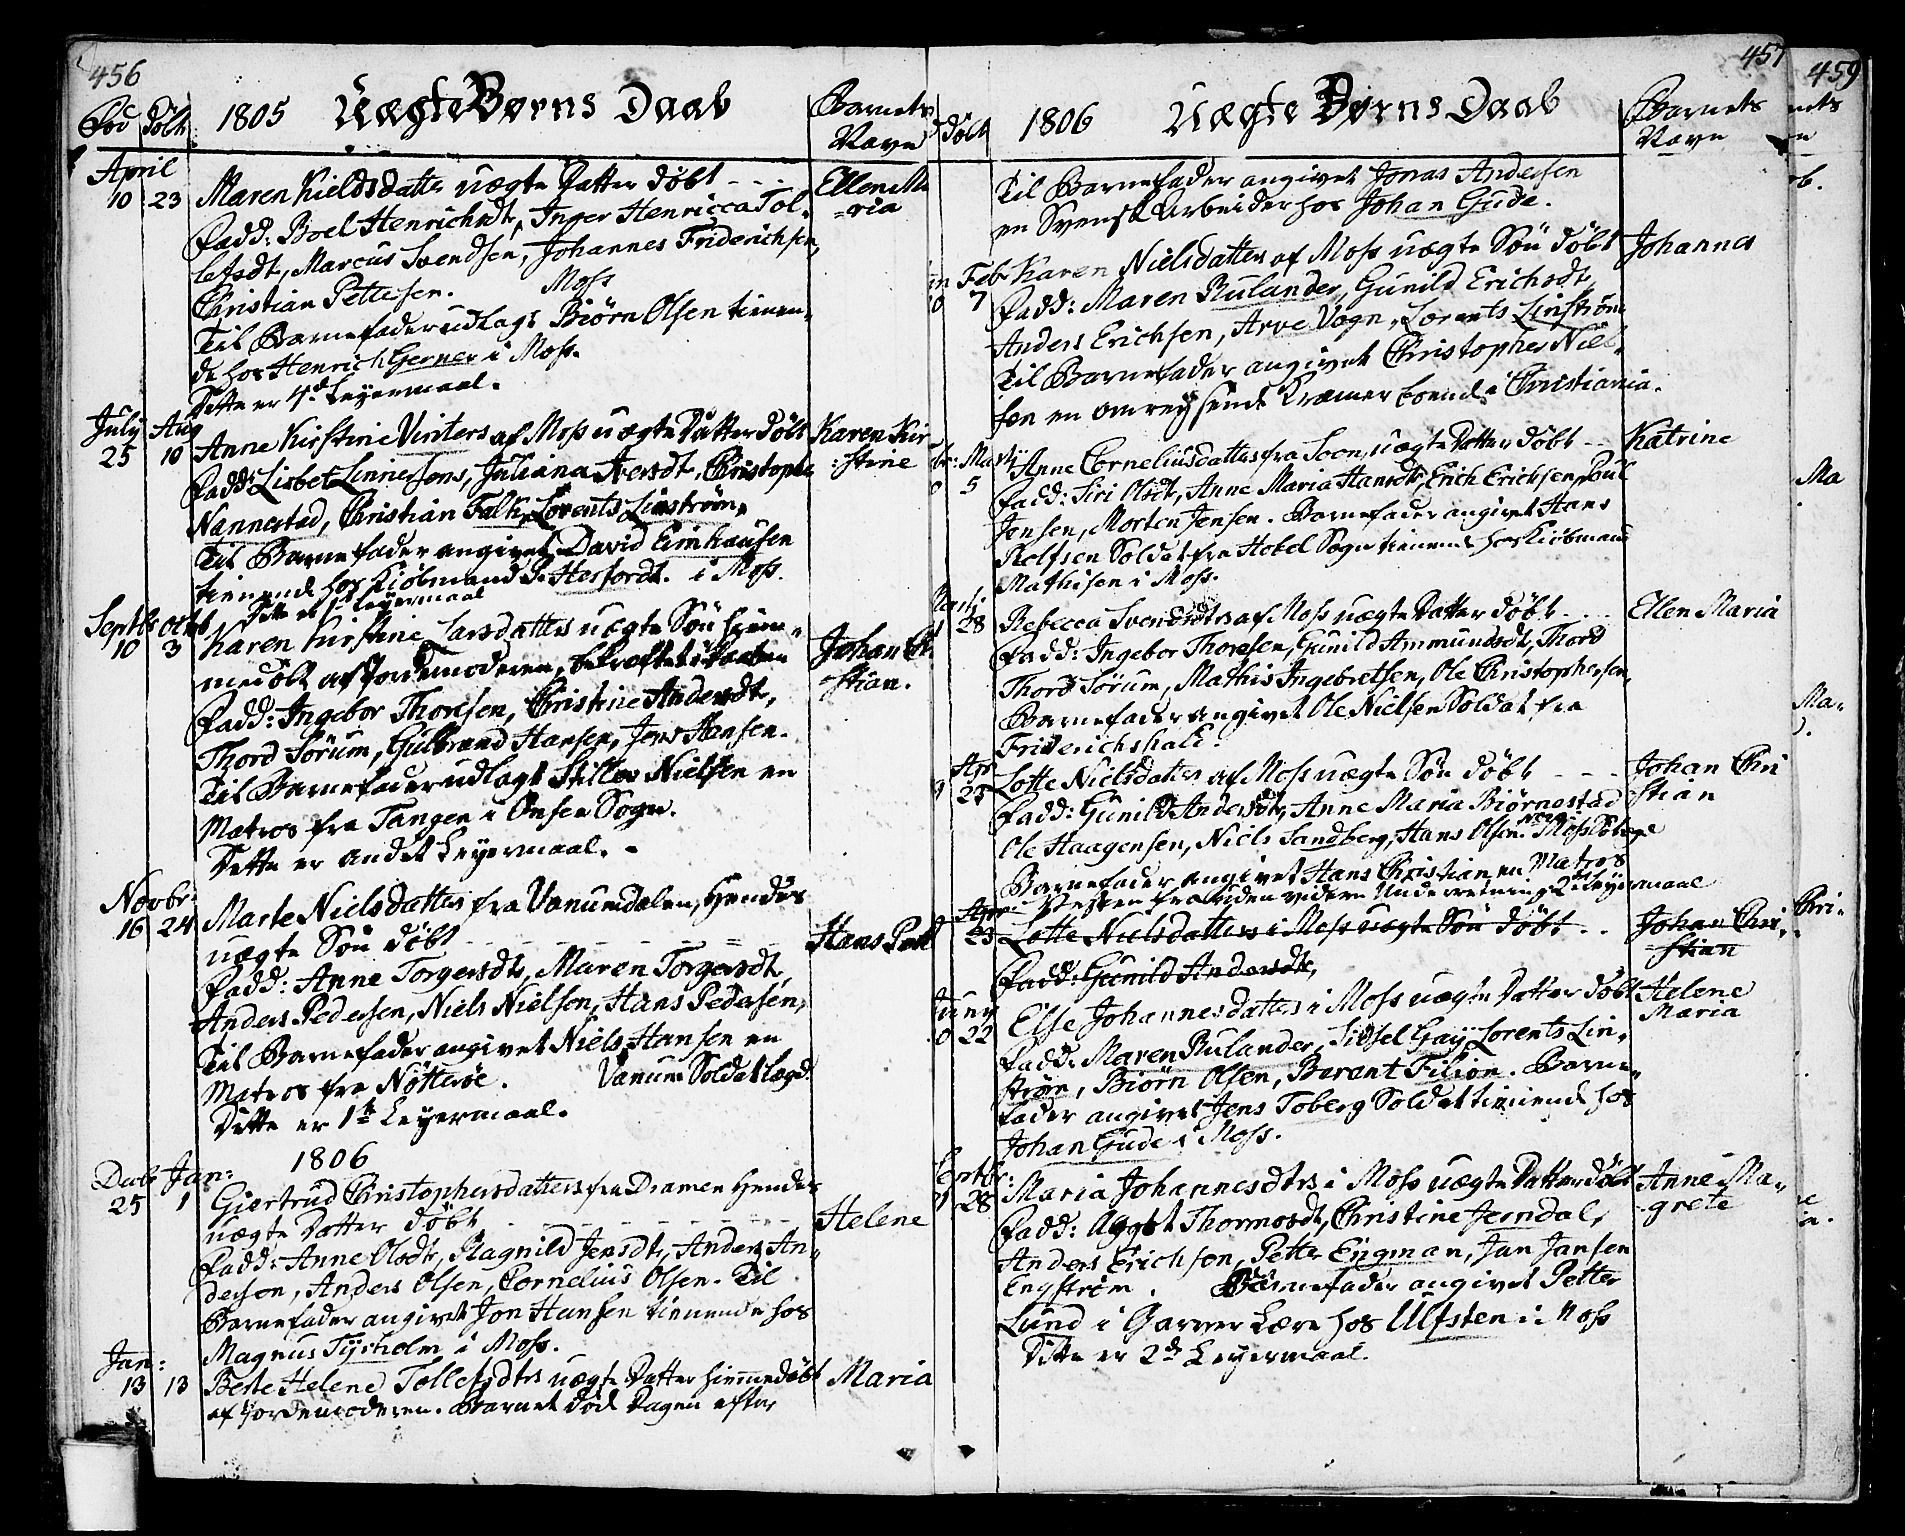 456
Fød Døbt 1805 Uægte Børns Daab Barnets Navn
April
10 23 Maren Kieldsdatter uægte Datter døbt - - - Ellen Ma
Fadd: Boel Henrichsdt, Inger Henricca Tol- =ria
lefsdt, Marcus Svendsen, Johannes Friderichsen,
Christian Pettersen. Moss
Til Barnefader udlagt Biørn Olsen tienen-
de hos Henrich Gerner i Moss.
Dette er 4de Leyermaal.
July Aug
25 10 Anne Kirstine Vinters af Moss uægte Datter døbt Karen Kir
Fadd: Lisbet Linnesøns, Juliana Aversdt, Christopher :stine
Nannestad, Christian Falk, Lorents Linstrøm,
Til Barnefader angivet David Eimhausen
tienende hos Kiøbmand P. Herfordt. i Moss.
Dette er 1te Leyermaal
Septbr Octbr
10 3 Karen Kirstine Larsdatters uægte Søn hiem- Johan Chri
medøbt af Jordemoderen, bekræftet i Kirken -stian.
Fadd: Ingebor Thoresen, Christine Andersdt,
Thord Sørum, Gulbrand Hansen, Jens Hansen.
Til Barnefader udlagt Stillov Nielsen en
Matros fra Tangen i Onsøe Sogn.
Dette er andet Leyermaal. -
Novbr:
16 24 Marte Nielsdatter fra Vanumdalen, Hendes
uægte Søn døbt - - - - Hans Pett
Fadd: Anne Torgersdt, Maren Torgersdt,
Anders Pedersen, Niels Nielsen, Hans Pedersen,
Til Barnefader angivet Niels Hansen en
Matros fra Nøtterøe. Vanum Soldat Lægd.
Dette er 1te Leyermaal.
1806
Decbr Jan:
25 1 Giertrud Christophersdatters fra Dramen Hendes
uægte Datter døbt - - - - Helene
Fadd: Anne Olsdt, Ragnild Jensdt, Anders An-
dersen, Anders Olsen, Cornelius Olsen. Til
Barnefader angivet Jon Hansen tienende hos
Magnus Tyrholm i Moss.
Jan:
13 13 Berte Helene Tollefsdtrs uægte Datter hiemmedøbt Maria
af Jordemoderen. Barnet døde Dagen efter
457
Døbt 1806 Uægte Børns Daab Barnets Navn
Til Barnefader angivet Jonas Andersen
en Svensk Arbeider hos Johan Gude.
Feb Karen Nielsdatter af Moss uægte Søn døbt Johannes
7 Fadd: Maren Rulander, Gunild Erichsdt,
Anders Erichsen, Arve Vogn, Lorents Linstrøm
Til Barnefader angivet Christopher Niel-
sen en omreysende Kræmer boende i Christiania.
Anne Corneliusdatter fra Soon, uægte Datter døbt - - Katrine
5 Fadd: Siri Olsdt, Anne Maria Hansdt, Erich Erichsen, Poul
Jensen, Morten Jensen. Barnefader angivet Hans
Rolfsen Soldat fra Hobel Sogn tienende hos Kiøbmand
Mathisen i Moss.
28 Rebecca Svendsdtrs af Moss uægte Datter døbt - - - Ellen Maria
Fadd: Ingebor Thoresen, Gunild Ammundsdt, Thord
Thord Sørum, Mathis Ingebretsen, Ole Christophersen,
Barnefader angivet Ole Nielsen Soldat fra
Friderichshald.
Apr
25 Lotte Nielsdatter af Moss uægte Søn døbt - - - Johan Chri
Fadd: Gunild Andersdt, Anne Maria Biørnestad -stian
Ole Haagensen, Niels Sandberg, Hans Olsen.
Barnefader angivet Hans Christian en Matros
Vesten fra uden videre Underretning 2de Leyermaal
Apr
23 Lotte Nielsdatters i Moss uægte Søn døbt . . Johan Chri-
Fadd: Gunild Andersdt, -stian
Juny
22 Else Johannesdatters i Moss uægte Datter døbt Helene
Fadd: Maren Rulander, Sidsel Gay, Lorents Lin- Maria
strøm, Biørn Olsen, Barent Filion. Barne-
fader angivet Jens Toberg Soldat tienende hos
Johan Gude i Moss.
28 Maria Johannesdtrs i Moss uægte Datter døbt Anne Ma-
Fadd: Aggot Thormosdt, Christine Jerndal, -grete
Anders Erichsen, Petter Engman, Jan Jansen
Engstrøm. Barnefader angivet Petter
Lund i Garver Lære hos Ulfsten i Moss
Dette er 2de Leyermaal.
459